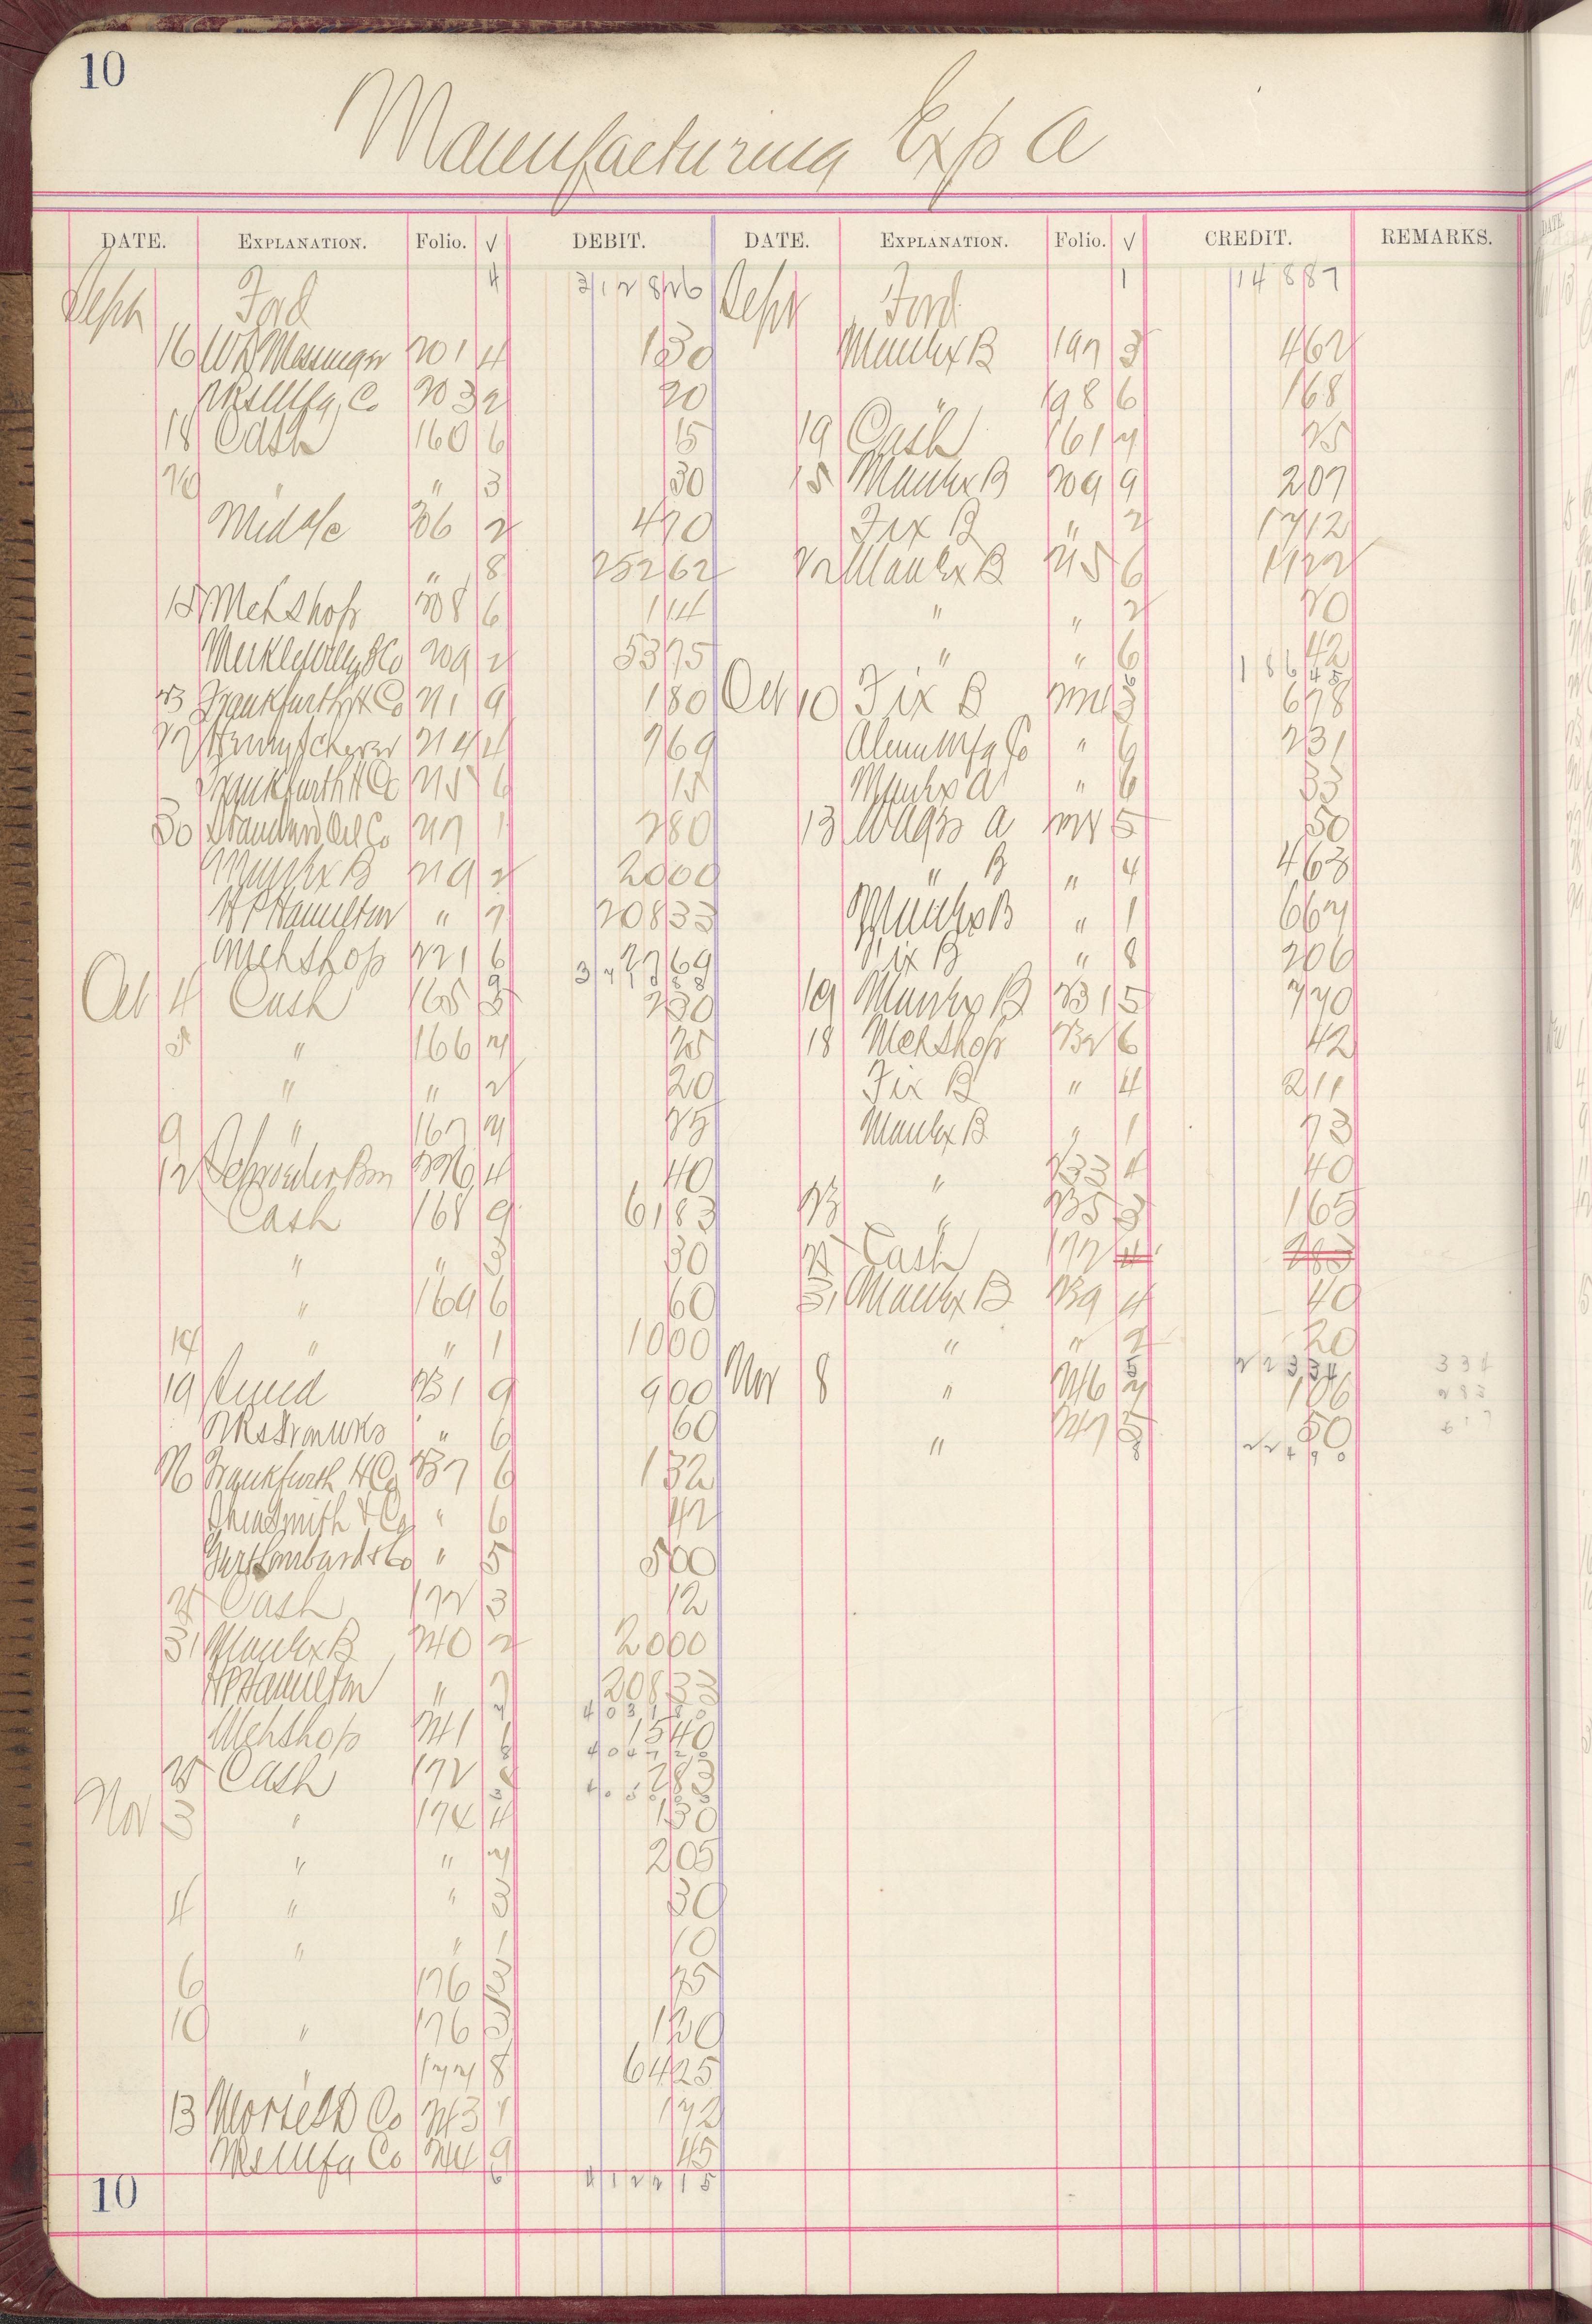 10
Manufacturing Exp A
DATE. EXPLANATION. Folio. √ DEBIT. DATE. EXPLANATION. Folio. √ CREDIT. REMARKS.
Sept Ford 4 312826 Sept Ford 1 14887
16 201 4 130 Manfex B 197 3 462
Mfg Co 203 2 20 " 198 6 168
18 Cash 160 6 15 19 Cash 161 7 25
20 " " 3 30 15 Manfex B 209 9 207
Mid a/c 206 2 470 Fix B " 2 1712
" 8 25262 22 Manfex B 215 6 1122
15 Meh Shop 208 6 114 " " 2 20
209 2 5375 " " 6 42
186 45
23 Frankfurth H Co 211 9 180 Oct 10 Fix B 3 678
27 Henry Scherer 214 4 769 Alum Mfg Co " 6 231
Frankfurth H Co 215 6 15 Manfex A " 6 33
30 Standard Oil Co 217 1 280 13 Wages A 5 50
Manfex B 219 2 2000 " B " 4 463
H P Hamilton " 7 20833 Manfex B " 1 667
Meh Shop 221 6 2769 Fix B " 8 206
Oct 4 Cash 165 3 230 19 Manfex B 231 5 770
5 " 166 7 25 18 Meh Shop 232 6 42
" " 2 20 Fix B " 4 211
9 " 167 7 25 Manfex B " 1 73
12 4 40 " 233 4 40
Cash 168 9 6183 23 " 235 3 165
" " 3 30 25 Cash 172 4 283
" 169 6 60 31 Manfex B 239 4 40
14 " " 1 1000 " " 2 20
2 2 3 3 4 3 3 4
19 231 9 900 Nov 8 " 246 7 106 2 8 3
" 6 60 " 247 5 50 6 1 7
26 Frankfurth H Co 237 6 132
Smith & Co " 6 42
Lombard & Co " 5 500
25 Cash 172 3 12
31 Manfex B 240 2 2000
H P Hamilton " 7 20833
403180
Meh Shop 241 1 1540
25 Cash 172 4 283
Nov 3 " 174 4 130
" " 7 205
4 " " 3 30
" " 1 10
6 176 3 75
10 " 176 3 120
" 177 8 6425
13 Co 243 1 172
Mfg Co 244 9 45
6 412215
10